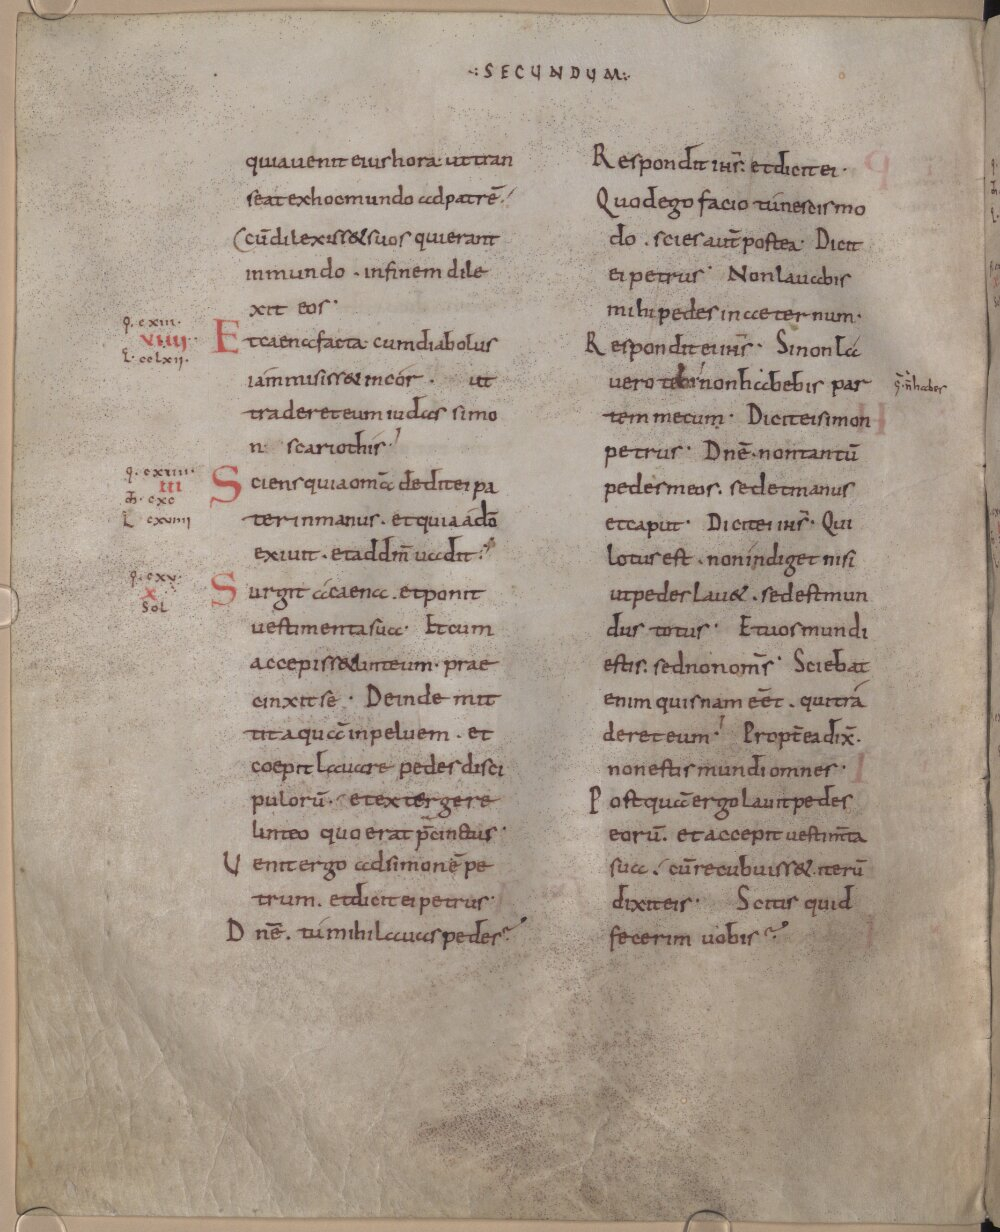 ·:SECUNDUM:·
quia uenit eius hora ut tran
seat ex hoc mundo ad patrē·
Cū dilexiss& suos qui erant
in mundo · in finem dile
xit eos·
q̄· cxiii·
viiii·
L· cclxii·
Et caena facta cum diabolus
iam misiss& in cor · ut
traderet eum iudas simo
n· scariothis·
q̄· cxiiii·
iii
m̄· cxc
L cxviiii
Sciens quia om̄a dedit ei pa
ter in manus · et quia a dō
exiuit · et ad dm̄ uadit·
q̄· cxv·
x
Sol
Surgit a caena · et ponit
uestimenta sua· Et cum
accepiss& linteum · prae
cinxit se· Deinde mit
tit aquā in peluem · et
coepit lauare pedes disci
pulorū · et extergere
linteo quo erat p̄cinctus·
Uenit ergo ad simonē pe
trum · et dicit ei petrus·
Dnē · tú mihi lauas pedes?
Respondit ihs̄· et dicit ei·
Quod ego facio tú nescis mo
do · scies aut̄ postea· Dicit
ei petrus· Non lauabis
mihi pedes in aeternum·
Respondit ei ihs̄· Si non la
uero te non habebis par
q̄· n̄ habes
tem mecum· Dicit ei simon
petrus· Dnē · non tantū
pedes meos · sed et manus
et caput· Dicit ei ihs̄· Qui
lotus est · non indiget nisi
ut pedes lau& · sed est mun
dus totus· Et uos mundi
estis · sed non om̄s· Sciebat
enim quisnam eēt · qui trā
deret eum· Propt̄ea dix̄·
non estis mundi omnes·
Postquā ergo lauit pedes
eorū · et accepit uestim̄ta
sua · cū recubuiss& iterū
dixit eis· Scitis quid
fecerim uobis?